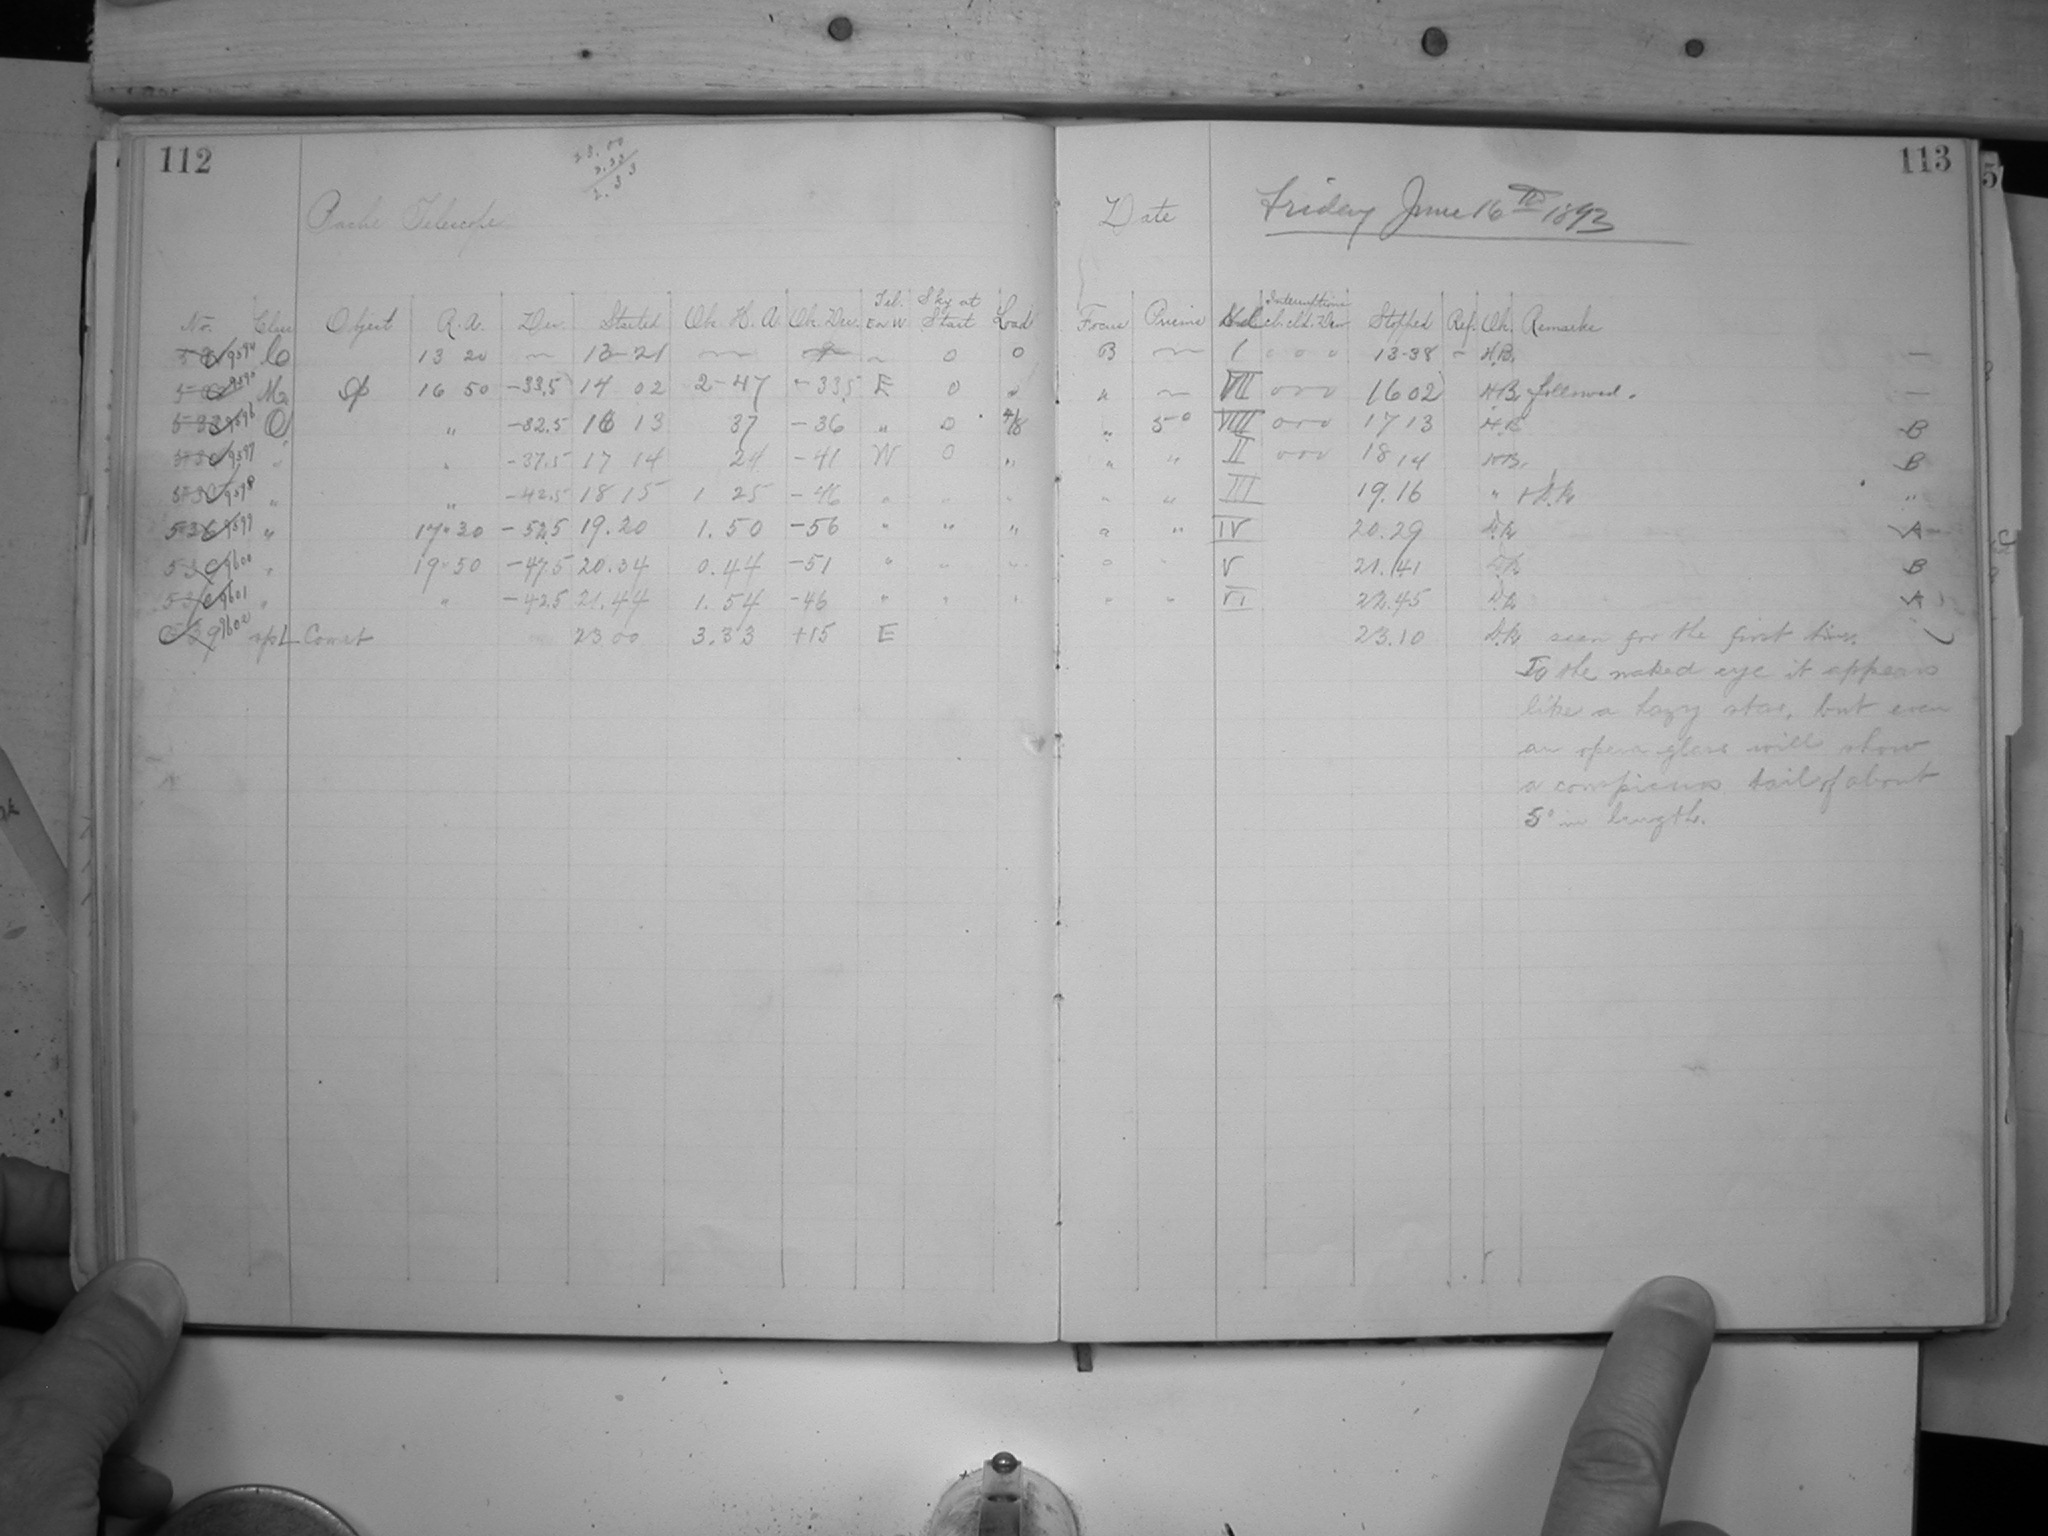 112
23.00
Bache Telescope
No. Class Object R.A. Dec. Started Ob. H.A. Ob. Dec. Tel. E or W Sky at Start Load
9594 13 20 13-21 0 0
9595 16 50 -33.5 14 02 2-47 -33.5 E 0 "
9596 " -32.5 16 13 37 -36 " 0
9597 " " -37.5 17 14 24 -41 W 0 "
9598 " " -42.5 18 15 1 25 -46 " " "
536 9599 " 17-30 -52.5 19.20 1.50 -56 " " "
9600 " 19-50 -47.5 20.34 0.44 -51 " " "
9601 " " -42.5 21.44 1.54 -46 " " "
539 9602 Comet 23 00 3.33 +15 E
113
5
Date Friday June 16th 1893
Focus Prisms Interruptions Stopped Ref. Ob. Remarks
B I 0 0 0 13-38 - H.B. -
" VII 0 0 0 16 02 H.B. followed. -
" 5° VIII 0 0 0 17 13 H.B. B
" " II 0 0 0 18 14 H.B. B
" " III 19.16 " "
" " IV 20.29 A
" " V 21.41 B
" " VI 22.45 A
23.10 seen for the first time.
To the naked eye it appears
like a hazy star, but even
an opera glass will show
a conspicuos tail of about
5° in length.